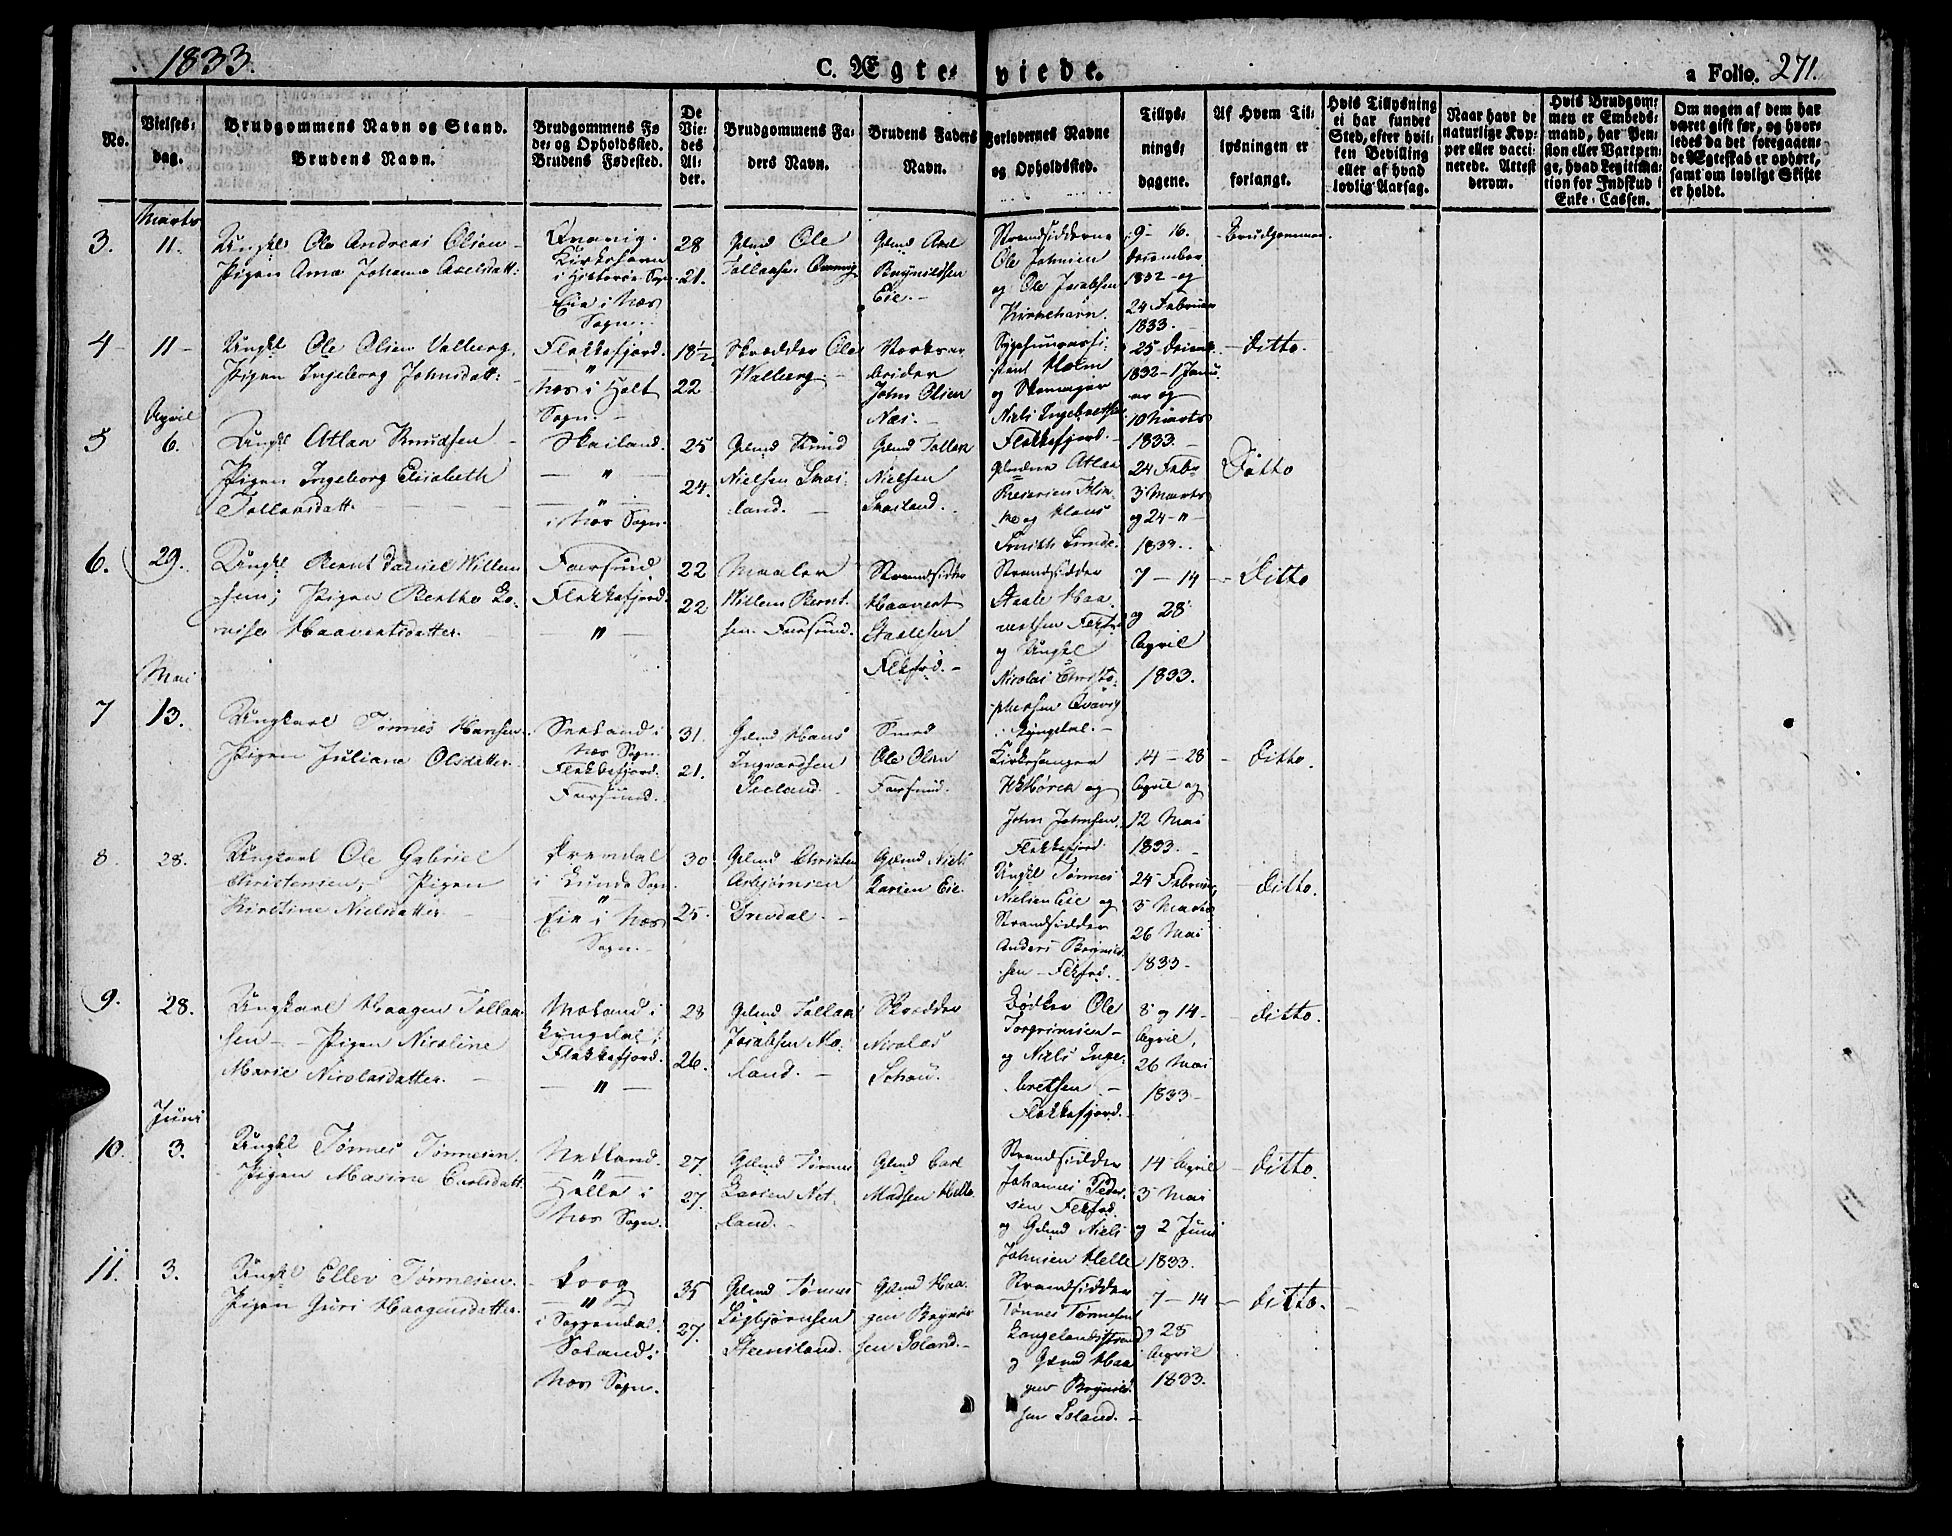 1833.
C. Ægte-viede.
a Folio. 271.
No.
Vielses-
dag.
Brudgommens Navn og Stand.
Brudens Navn.
Brudgommens Fø-
de- og Opholdssted.
Brudens Fødested.
De
Vie-
des
Al-
der.
Brudgommens Fa-
ders Navn.
Brudens Faders
Navn.
Forlovernes Navne
og Opholdssted.
Tillys-
nings-
dagene.
Af Hvem Til-
lysningen er
forlangt.
Hvis Tillysning
ei har fundet
Sted, efter hvil-
ken Bevilling
eller af hvad
lovlig Aarsag.
Naar havt de
naturlige Kop-
per eller vacci-
nerede. Attest
derom.
Hvis Brudgom-
men er Embeds-
mand, har Pen-
sion eller Vartpen-
ge, hvad Legitima-
tion for Indskud i
Enke-Cassen.
Om nogen af dem har
været gift før, og hvor-
ledes da det foregaaen-
de Ægteskab er ophørt,
samt om lovligt Skifte
er holdt.
Marts
3.
11.
Ungkl Ole Andreas Olsen
Pigen Ana Johana Axelsdatt:
Qvavig.
Kirkehavn
i Hitterøe Sogn
Eie i Næs
Sogn.
28
21.
Glmd Ole
Tollaksen Qvavig
Glmd Axel
Brynildsen
Eie.
Strandsidderne
Ole Johnsen
og Ole Jacobsen
Kirkehavn.
9 - 16.
December
1832 og
24 Februar
1833.
Brudgommen.
4
11
Ungkl Ole Olsen Valberg.
Pigen Ingeborg Johnsdatt:
Flekkefjord.
"
Næs i Holt
Sogn.
18½
22
Skrædder Ole
Walberg.
Verksar-
beider
John Olsen
Næs.
Holm
og Skomager
Niels Ingebretsen
Flekkefjord.
25 Decemb.
1832 - 1 Janu-
ar og
10 Marts
1833.
ditto.
April
5
6.
Ungkl Atlak Knudsen
Pigen Ingeborg Elisabeth
Tollaksdatt.
Skailand.
"
"
i Næs Sogn.
25
24.
Glmd Knud
Nielsen Skai-
land.
Glmd Tollak
Nielsen
Skailand.
Glmdene Atlak
og Klaus
24 Febr
3 Marts
og 24 "
1833.
Ditto
6.
29.
Ungkl Bernt Daniel Willum-
sen; Pigen Berthe Lo-
vise Haavertsdatter.
Farsund
Flekkefjord.
"
22
22
Maaler
Willum Bernt-
sen Farsund.
Strandsidder
Haavert
Staalesen
Flkfrd.
Strandsidder
Staale Haa-
vertsen Flkfrd
og Ungkl
Nicolai Christo-
phersen Qvavig
7 - 14
og 28
April
1833.
Ditto
Mai
7
13.
Ungkarl Tønnes Hansen
Pigen Juliane Olsdatter.
Seeland i
Næs Sogn.
Flekkefjord.
Farsund.
31.
21.
Glmd Hans
Ingvardsen
Seeland
Smed
Ole Olsen
Farsund.
Kirkesanger
og
John Johnsen
Flekkefjord
14 - 28
April og
12 Mai
1833.
ditto.
8.
28.
Ungkarl Ole Gabriel
Christensen, Pigen
Kirstine Nielsdatter.
i Lunde Sogn.
"
Eie i Næs
Sogn.
30
25.
Glmd Christen
Asbjørnsen
Glmd Niels
Larsen Eie.
Ungkl Tønnes
Nielsen Eie og
Strandsidder
Anders Brynild-
sen - Flkfrd.
24 Februar
3 Marts
26 Mai
1833
ditto.
9.
28.
Ungkarl Haagen Tollak-
sen - Pigen Nicoline
Marie Nicolasdatter.
Moland i
Flekkefjord.
"
28
26.
Glmd Tollak
Jacobsen Mo-
land.
Skrædder
Nicolas
Schou.
Bødker Ole
Torgrimsen
og Niels Inge-
bretsen
Flekkefjord.
8 og 14
April,
26 Mai
1833
ditto.
Juni
10.
3.
Ungkl Tønnes Tønnesen.
Pigen Maxine Carlsdatt.
Netland.
"
Helle i
Næs Sogn.
27.
27.
Glmd Tønnes
Larsen Net-
land.
Glmd Carl
Madsen Helle
Strandsidder
Johannes Peder-
sen Flkfrd.
og Glmd Niels
Johnsen Helle
14 April
5 Mai
og 2 Juni
1833.
ditto.
11.
3.
Ungkl Ellev Tønnesen.
Pigen Guri Haagensdatter.
Loog
"
i Soggendal.
Soland i
Næs Sogn.
35
27.
Glmd Tønnes
Sigbjørnsen
Steensland.
Glmd Haa-
gen Brynild-
sen Soland.
Strandsidder
Tønnes Tønnesen
Langelandsstrand
og Glmd Haa-
gen Brynild-
sen Soland.
7 - 14
28
April
1833.
ditto.